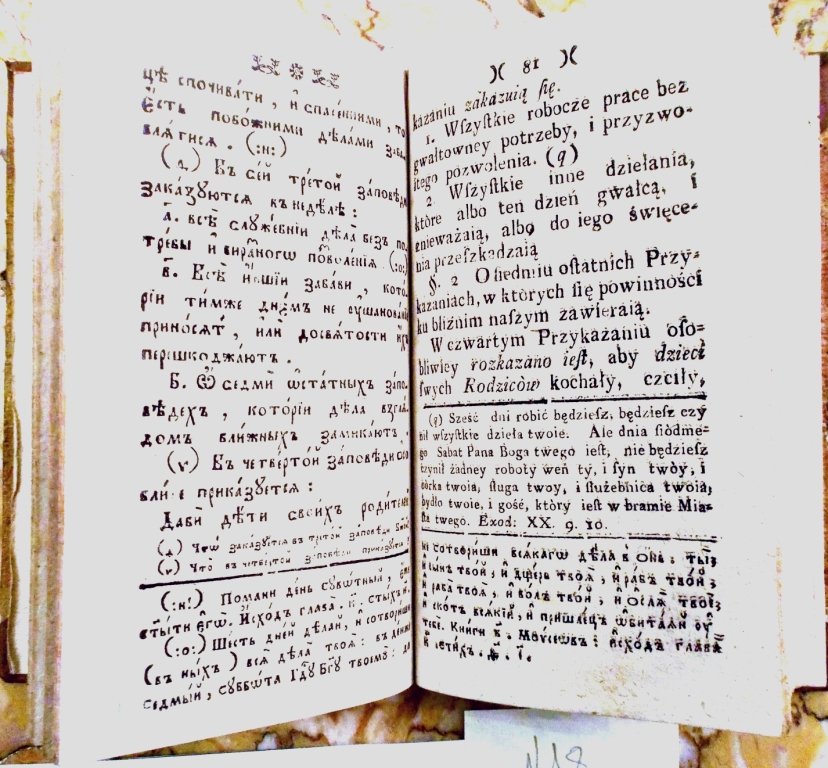 цѣ спочива́ти, и҆ спасе́нними, то
є҆сть побо́жними дѣ́лами забав
ля́тися. (:н:)
(д) Въ се́й тре́той за́повѣди
зака́зуются въ недѣ́лѣ:
а҃. всѣ̀ служе́бнїи дѣла̀ безъ по
тре́бы и҆
в҃. Всѣ̀ и҆́ншїи заба́ви, кото
рїи ти́мже дне́мъ не
прино́сятъ, и҆лѝ до свя́тости
перешкоджа́ютъ.
Б. Ѿ седмѝ ѡ҆ста́тныхъ за́по
вѣдехъ, кото́рїи дѣла̀ взгля́
домъ бли́жныхъ замика́ютъ.
(ѵ) Въ четве́ртой за́повѣди осо
бли́ве прика́зуется:
Дабѝ дѣ́ти свои́хъ роди́телей
(д) Что̀ заказуется въ третой заповѣди
(ѵ) Что̀ въ четвертой заповѣди приказуется
(:н:) Помнѝ де́нь суббѡ́тный,
ст҃и́ти є҆го̀. И҆схо́дъ глава̀. к҃. сти́хъ и҃.
(:о:) Ше́сть дне́й дѣ́лай, и҆ сотвори́ши
(въ ни́хъ) всѧ̑ дѣла̀ твоѧ̑: въ де́нь же
седмы́й, суббѡ́та Гдⷭ҇у Бг҃у твоемꙋ̀: да
)( 81 )(
kazaniu zakazuią się.
1. Wſzyſtkie robocze prace bez
gwałtowney potrzeby, i przyzwo-
itego pozwolenia. (q)
2. Wſzyſtkie inne dziełania,
które albo ten dzień gwałcą, i
znieważaią, albo do iego święce-
nia przeſzkadzaią
§. 2 O ſiedmiu oſtatnich Przy-
kazaniach, w których ſię powinności
ku bliźnim naſzym zawieraią.
W czwartym Przykazaniu oſo-
bliwiey rozkazano ieſt, aby dzieci
ſwych Rodziców kochały, czciły,
(q) Sześć dni robić będzieſz, będzieſz czy
nił wſzyſtkie dzieła twoie. Ale dnia ſiódme-
go Sabat Pana Boga twego ieſt, nie będzieſz
czynił żadney roboty weń ty, i ſyn twóy, i
córka twoia, ſługa twoy, i ſłużebnica twoia,
bydło twoie, i gość, który ieſt w bramie Mia-
ſta twego. Exod: XX. 9. 10.
не сотвори́ши всѧ́кагѡ дѣ́ла в онь: ты̀
и҆ сы́нъ тво́й, и҆ дще́рь твоѧ̀, и҆ ра́бъ тво́й,
и҆ раба̀ твоѧ̀, и҆ во́лъ тво́й, и҆ ѻ҆слѧ̀ твоѐ,
и҆ ско́тъ всѧ́кїй, и҆ пришле́цъ ѡ҆бита́ѧй оу҆
тебѐ. Кни́ги в҃. Мѡѷсе́ѡвъ: и҆схо́дъ глава̀
к҃. сти́хъ. ѳ҃. і҃.
N 18